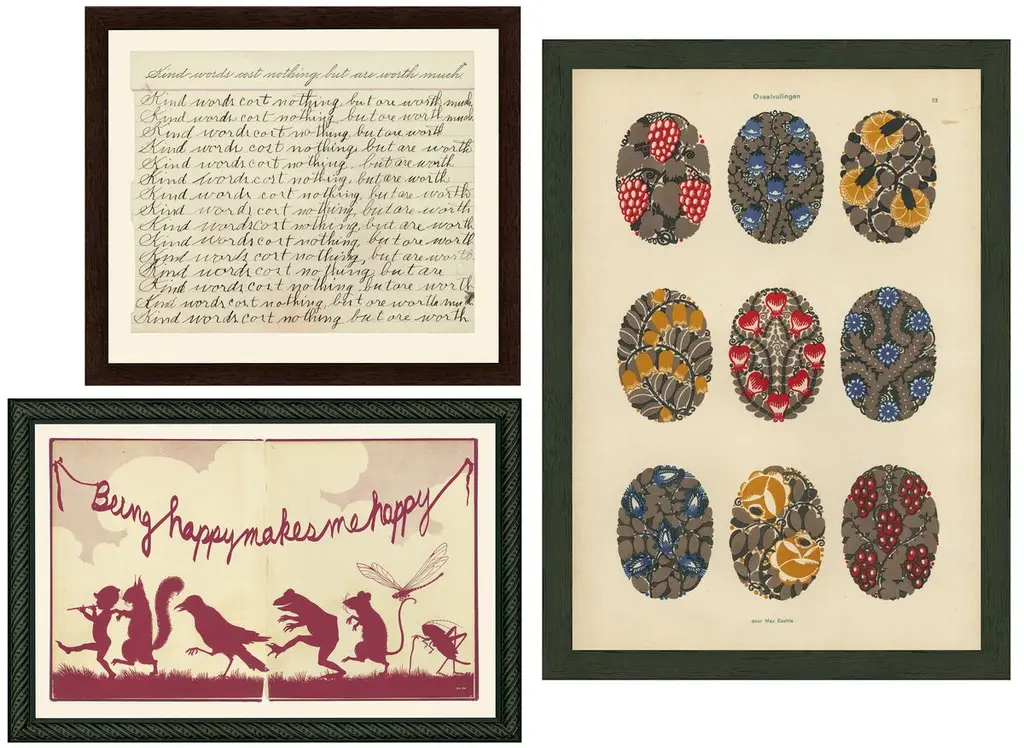 Kind words cost nothing but are worth much.
Kind words cost nothing, but are worth much
Kind words cost nothing, but are worth much
Kind words cost nothing, but are worth
Kind words cost nothing, but are worth
Kind words cost nothing, but are worth
Kind words cost nothing, but are worth
Kind words cost nothing, but are worth
Kind words cost nothing, but are worth
Kind words cost nothing, but are worth
Kind words cost nothing, but are worth
Kind words cost nothing, but are worth
Kind words cost nothing but are
Kind words cost nothing, but are worth
Kind words cost nothing, but are worth much
Kind words cost nothing but are worth
Being happy makes me happy
Ovaalvullingen 53
door Max